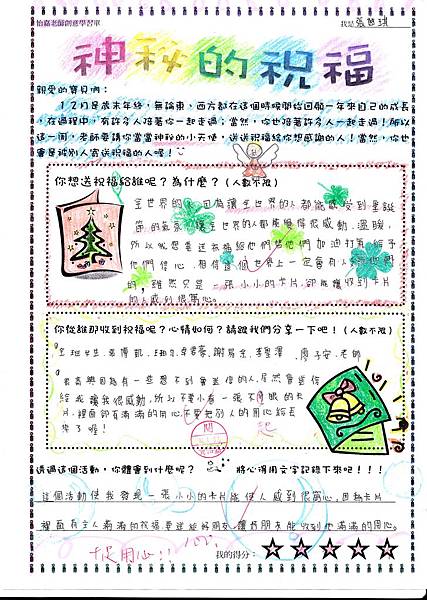 怡嘉老師創意學習單 我是:張芭琪
神秘的祝福
親愛的寶貝們：
12月是歲末年終，無論東、西方都在這個時候開始回顧一年來自己的成長
，在過程中，有許多人陪著你一起走過；當然，你也陪著許多人一起走過！所以
這一周，老師要請你當當神秘的小天使，送送祝福給你想感謝的人！當然，你也
會是被別人寄送祝福的人喔！
你想送祝福給誰呢？為什麼？(人數不限)
全世界的人，因為讓全世界的人都能感受到聖誕
節的氣氛，讓全世界的人都能覺得很感動、溫暖，
所以我想要送祝福給他們，給他們加油打氣，給予
他們信心，相信這個世界上一定會有人
的！雖然只是一張小小的卡片，卻能讓收到卡片
的人感到很窩心。
你從誰那收到祝福呢？心情如何？請跟我們分享一下吧！(人數不限)
全班女生、張博凱、謝易全、廖子安、老師
很高興因為有一些想不到會並信的人，居然會寄信
給我，讓我很感動，所以不要小看一張不起眼的卡
片，裡面卻有滿滿的用心，不要把別人的用心給丟
掉了喔！
閱
透過這個活動，你體會到什麼呢？ 將心得用文字記錄下來吧！！！
這個活動使我發現一張小小的卡片能使人感到很窩心，因為卡片
裡面有主人滿滿的祝福要送給好朋友，讓好朋友能收到他滿滿的用心。
很用心!! 100
我的得分：